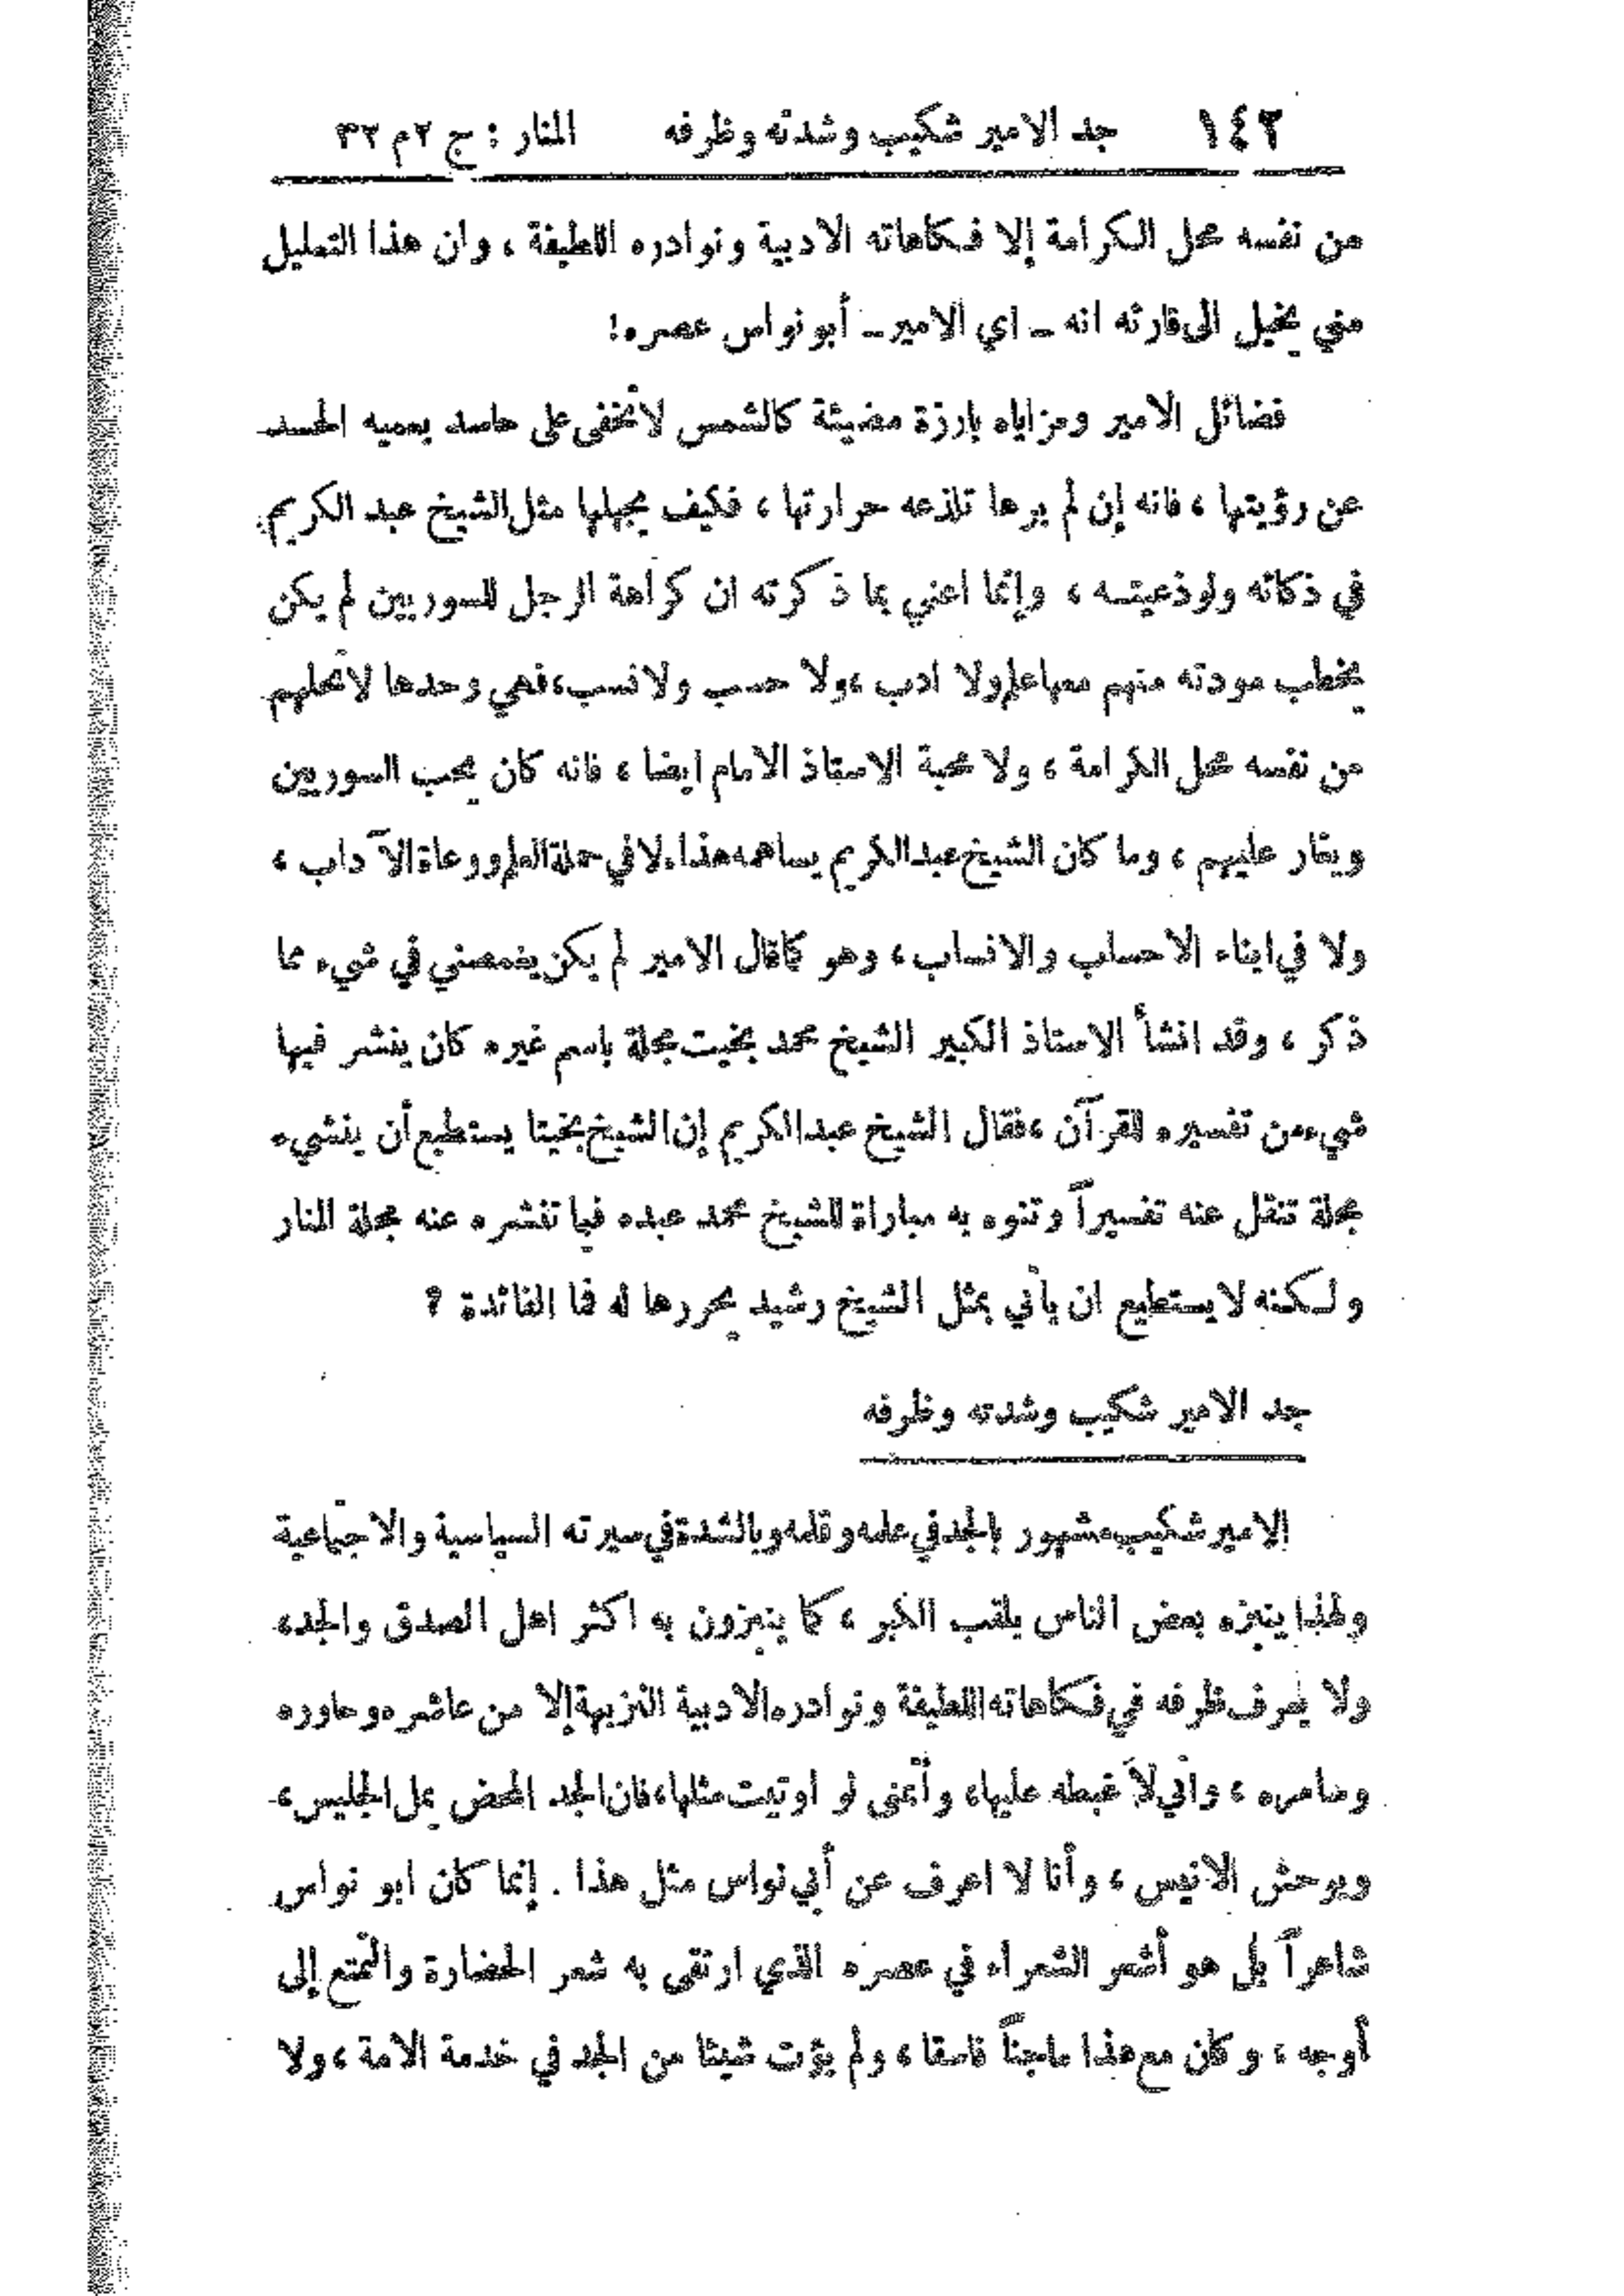 ١٤٢ جد الامير شكيب وشدته وظرفه المنار : ج ٢ م ٣٢
من نفسه محل الكرامة إلا فكاهاته الادبية ونوادره اللطيفة ، وان هذا التعليل
مني يخيل الى قارئه انه ــ اي الامير ــ أبو نواس عصره !
فضائل الامير ومزاياه بارزة مضيئة كالشمس لا تخفى على حاسد يعميه الحسد
عن رؤيتها ، فانه إن لم يرها تلذعه حرارتها ، فكيف يجهلها مثل الشيخ عبد الكريم
في ذكائه ولوذعيته ، وإنما اعني بما ذكرته ان كراهة الرجل للسوريين لم يكن
يخطب مودته منهم معها علم ولا ادب ، ولا حسب ولا نسب ، فهي وحدها لا تحلهم
من نفسه محل الكرامة ، ولا محبة الاستاذ الامام ايضا ، فانه كان يحب السوريين
ويغار عليهم ، وما كان الشيخ عبد الكريم يساهمه هذا ، لا في حملة العلم وروعاة الآداب ،
ولا في ابناء الاحساب والانساب ، وهو كما قال الامير لم يكن يغمصني في شيء مما
ذكر ، وقد انشأ الاستاذ الكبير الشيخ محمد بخيت مجلة باسم غيره كان ينشر فيها
شيء من تفسيره للقرآن ، فقال الشيخ عبد الكريم إن الشيخ بخيتا يستطيع أن ينشيء
مجلة تنقل عنه تفسيراً وتنوه به مباراة للشيخ محمد عبده فيما تنشره عنه مجلة المنار
ولكنه لا يستطيع ان يأتي بمثل الشيخ رشيد يحررها له فما الفائدة ؟
جد الامير شكيب وشدته وظرفه
الامير شكيب مشهور بالجد في علمه وقلمه وبالشدة في سيرته السياسية والاجتماعية
ولهذا ينبزه بعض الناس بلقب الكبر ، كما ينبزون به اكثر اهل الصدق والجد ،
ولا يعرف ظرفه في فكاهاته اللطيفة ونوادره الادبية النزيهة إلا من عاشره وحاوره
وسامره ، واني لأغبطه عليها ، وأتمنى لو اوتيت مثلها ، فان الجد المحض يمل الجليس ،
ويوحش الانيس ، وأنا لا اعرف عن أبي نواس مثل هذا . إنما كان ابو نواس
شاعراً بل هو أشعر الشعراء في عصره الذي ارتقى به شعر الحضارة والتمتع إلى
أوجه ، وكان مع هذا ماجناً فاسقا ، ولم يؤت شيئا من الجد في خدمة الامة ، ولا